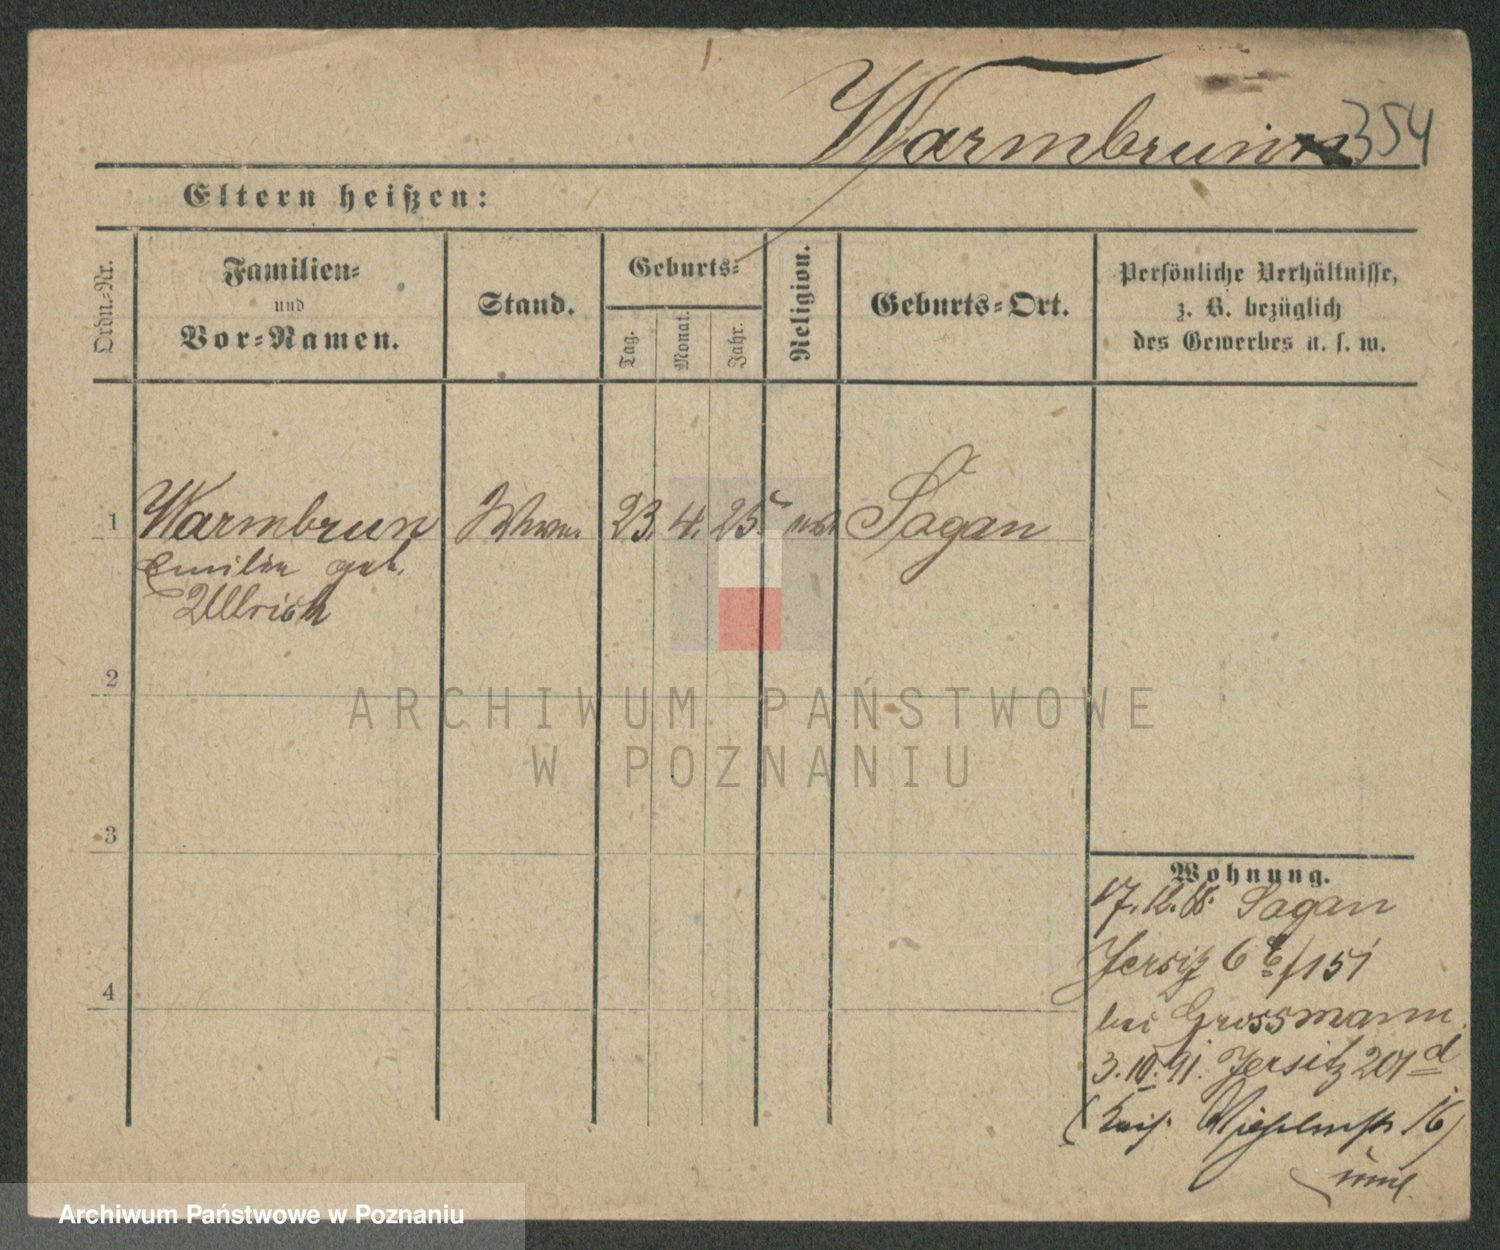 Warmbrun 354
Eltern heißen:
Ordn.-Nr.
Familien-
und
Vor-Namen.
Stand.
Geburts-
Tag.
Monat.
Jahr.
Religion.
Geburts-Ort.
Persönliche Verhältnisse,
z. B. bezüglich
des Gewerbes u. s. w.
1 Warmbrun Wwe. 23. 4. 25. Sagan
Emilie geb.
Ullrich
2
3
4
Wohnung.
17. 12. 88. Sagan
Jersitz 6 /151
bei Grossmann
3. 10. 91. Jersitz 201 d
(Kais. Wilhelmstr 16)
ARCHIWUM PAŃSTWOWE
W POZNANIU
Archiwum Państwowe w Poznaniu